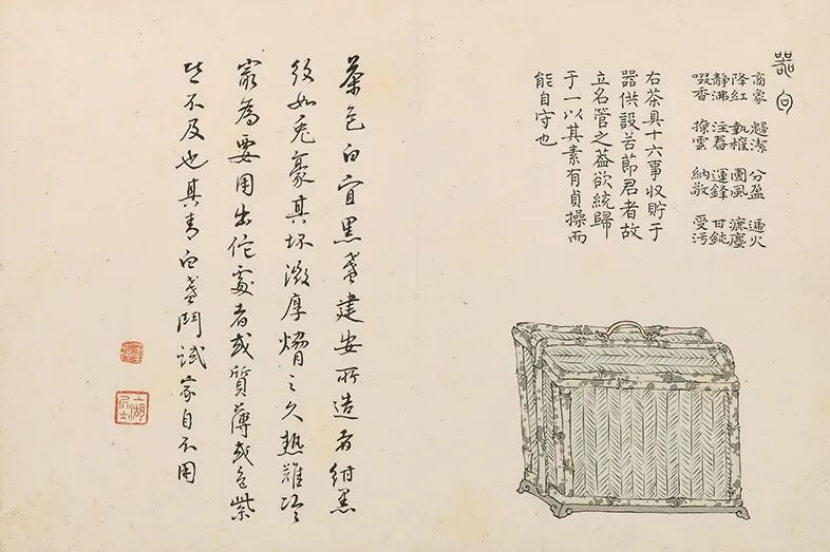 器局
商象 歸潔 分盈 遞火
降紅 執權 團風 漉塵
靜沸 注春 運鋒 甘鈍
啜香 撩雲 納敬 受污
右茶具十六事收貯于
器供設苦節君者故
立名管之葢欲統歸
于一以其素有貞操而
能自守也
茶色白宜黑盞建安所造者紺黑
紋如兔豪其坯微厚熁之久熱難冷
最為要用出佗處者或質薄或色紫
皆不及也其青白盞鬥試家自不用